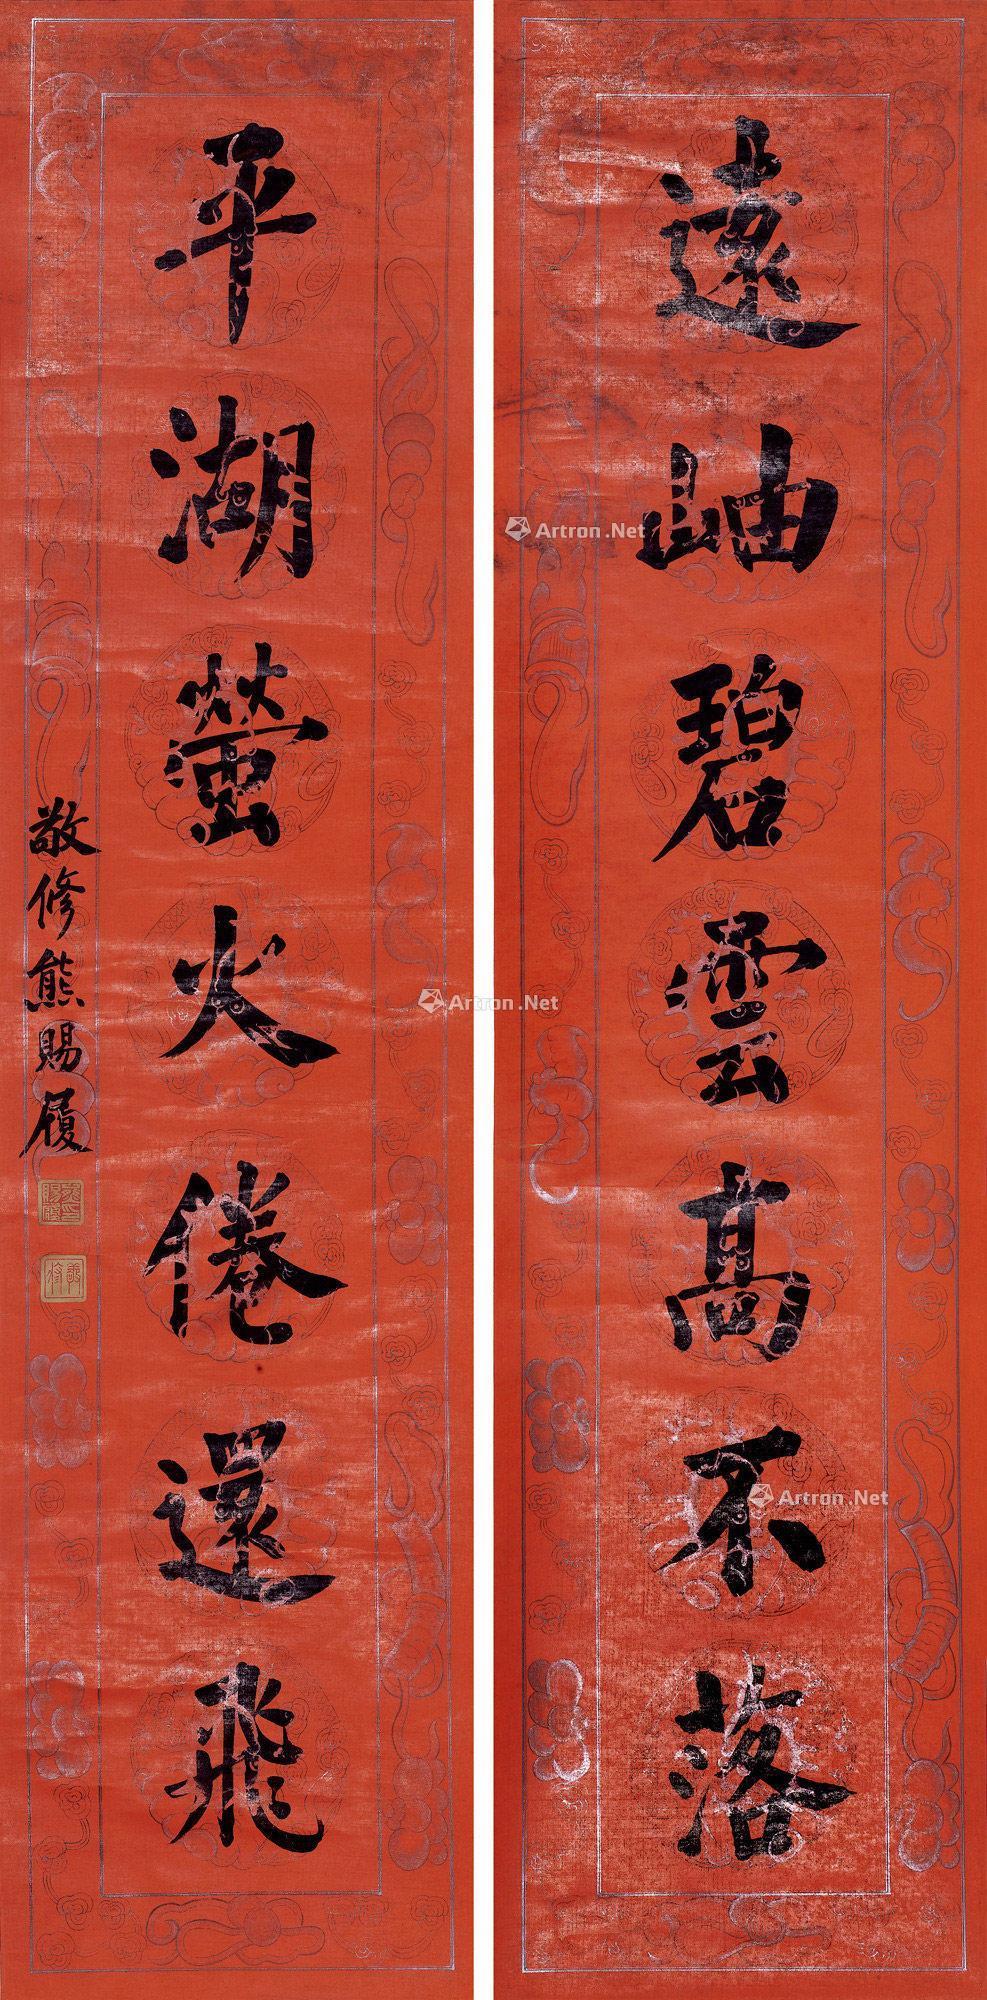 遠岫碧雲高不落
平湖螢火倦還飛
敬修熊賜履
熊賜履印
敬修
Artron.Net
Artron.Net
Artron.Net